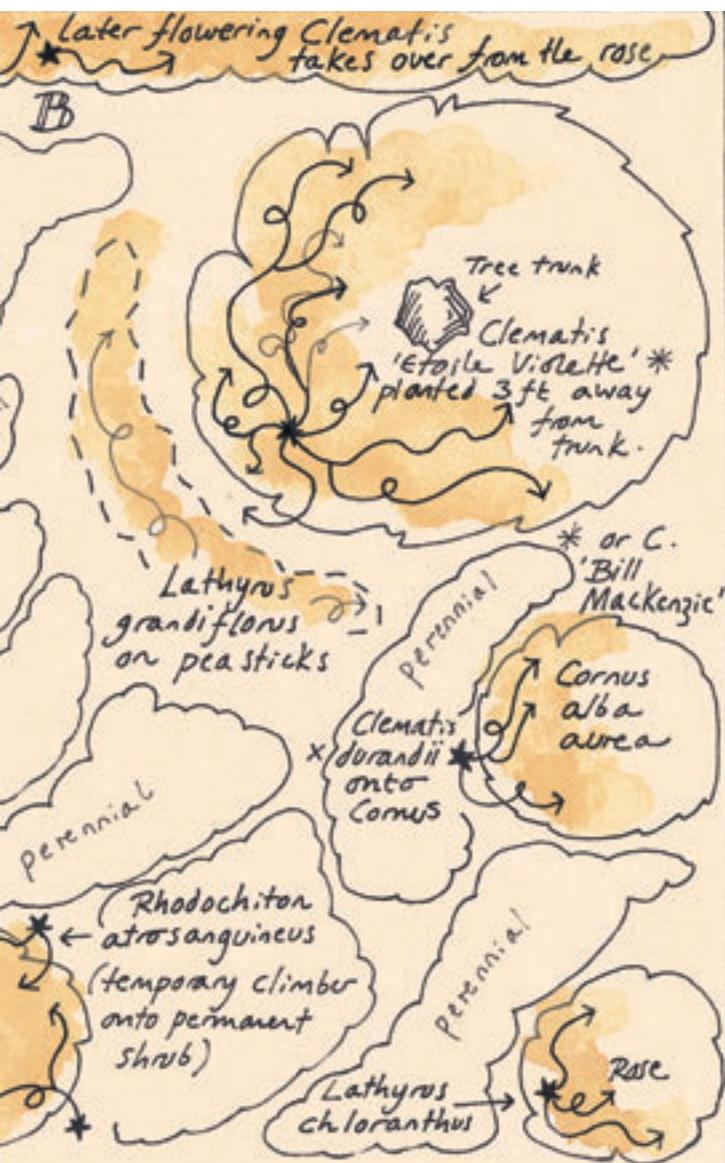 Later flowering Clematis
takes over from the rose
B
Tree trunk
Clematis
'Etoile Violette' *
planted 3 ft away
from
trunk.
* or C.
'Bill
Mackenzie'
Lathyrus
grandiflorus
on pea sticks
perennial
Cornus
alba
aurea
Clematis
x durandii
onto
Cornus
perennial
Rhodochiton
atrosanguineus
(temporary climber
onto permanent
shrub)
perennial
Rose
Lathyrus
chloranthus